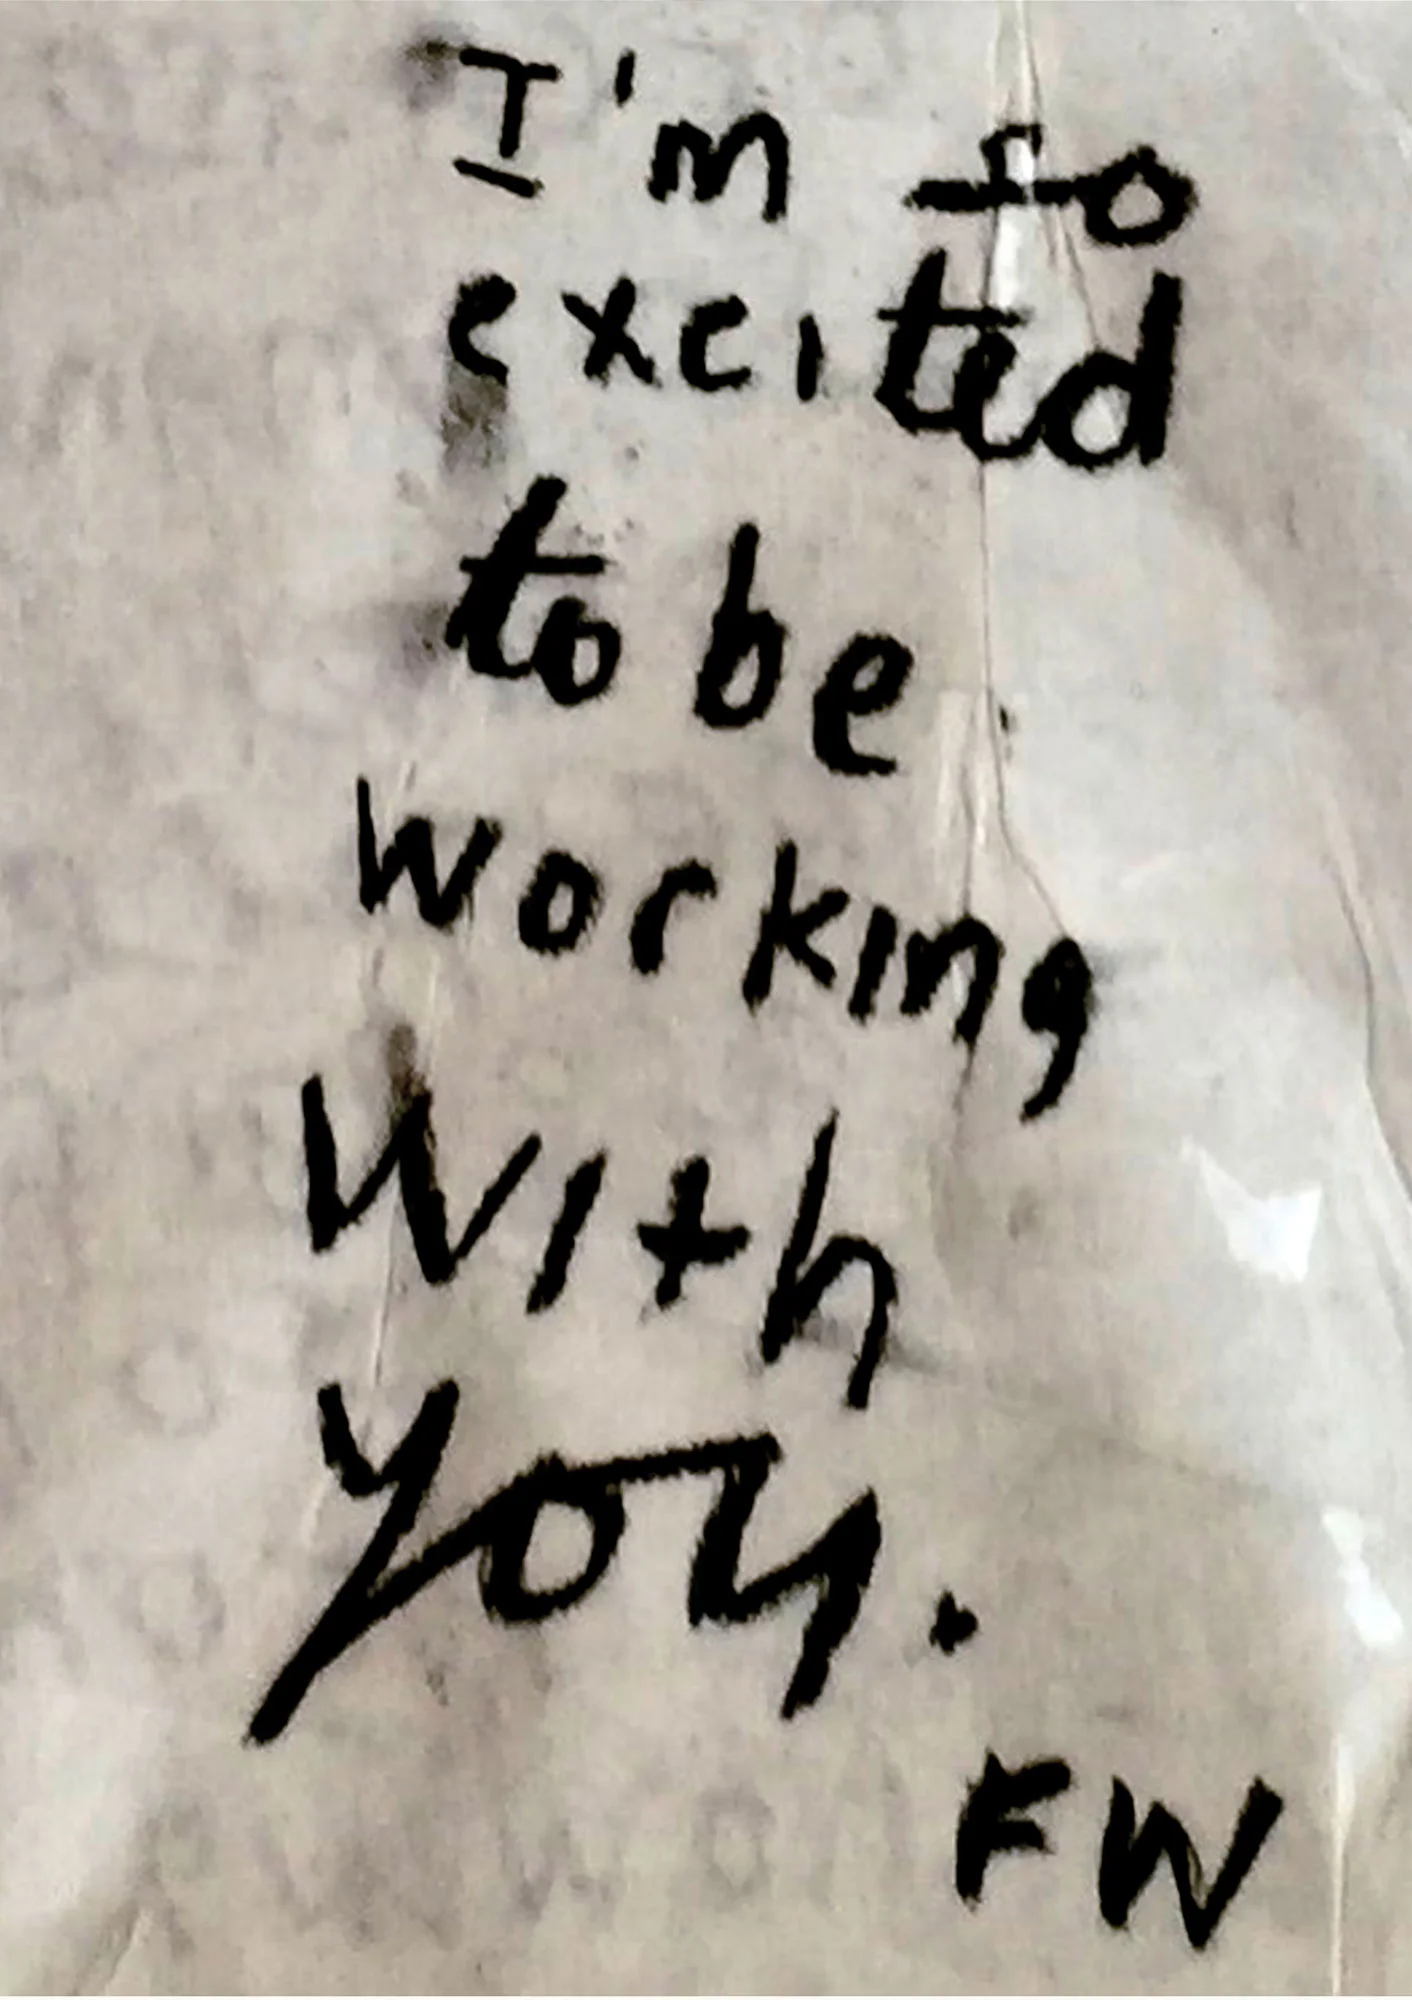 I'm so
excited
to be
working
with
you.
FW